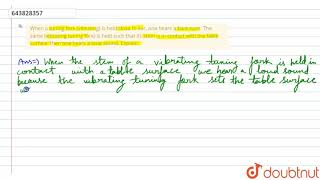 643828357
When a tuning fork (vibrating) is held close to ear, one hears a faint hum. The
same (vibrating tuning fork) is held such that its stem is in contact with the table
surface, then one hears a loud sound. Explain.
Ans:-) When the stem of a vibrating tuning fork is held in
contact with a table surface we hear a loud sound
because the vibrating tuning fork sets the table surface
doubtnut